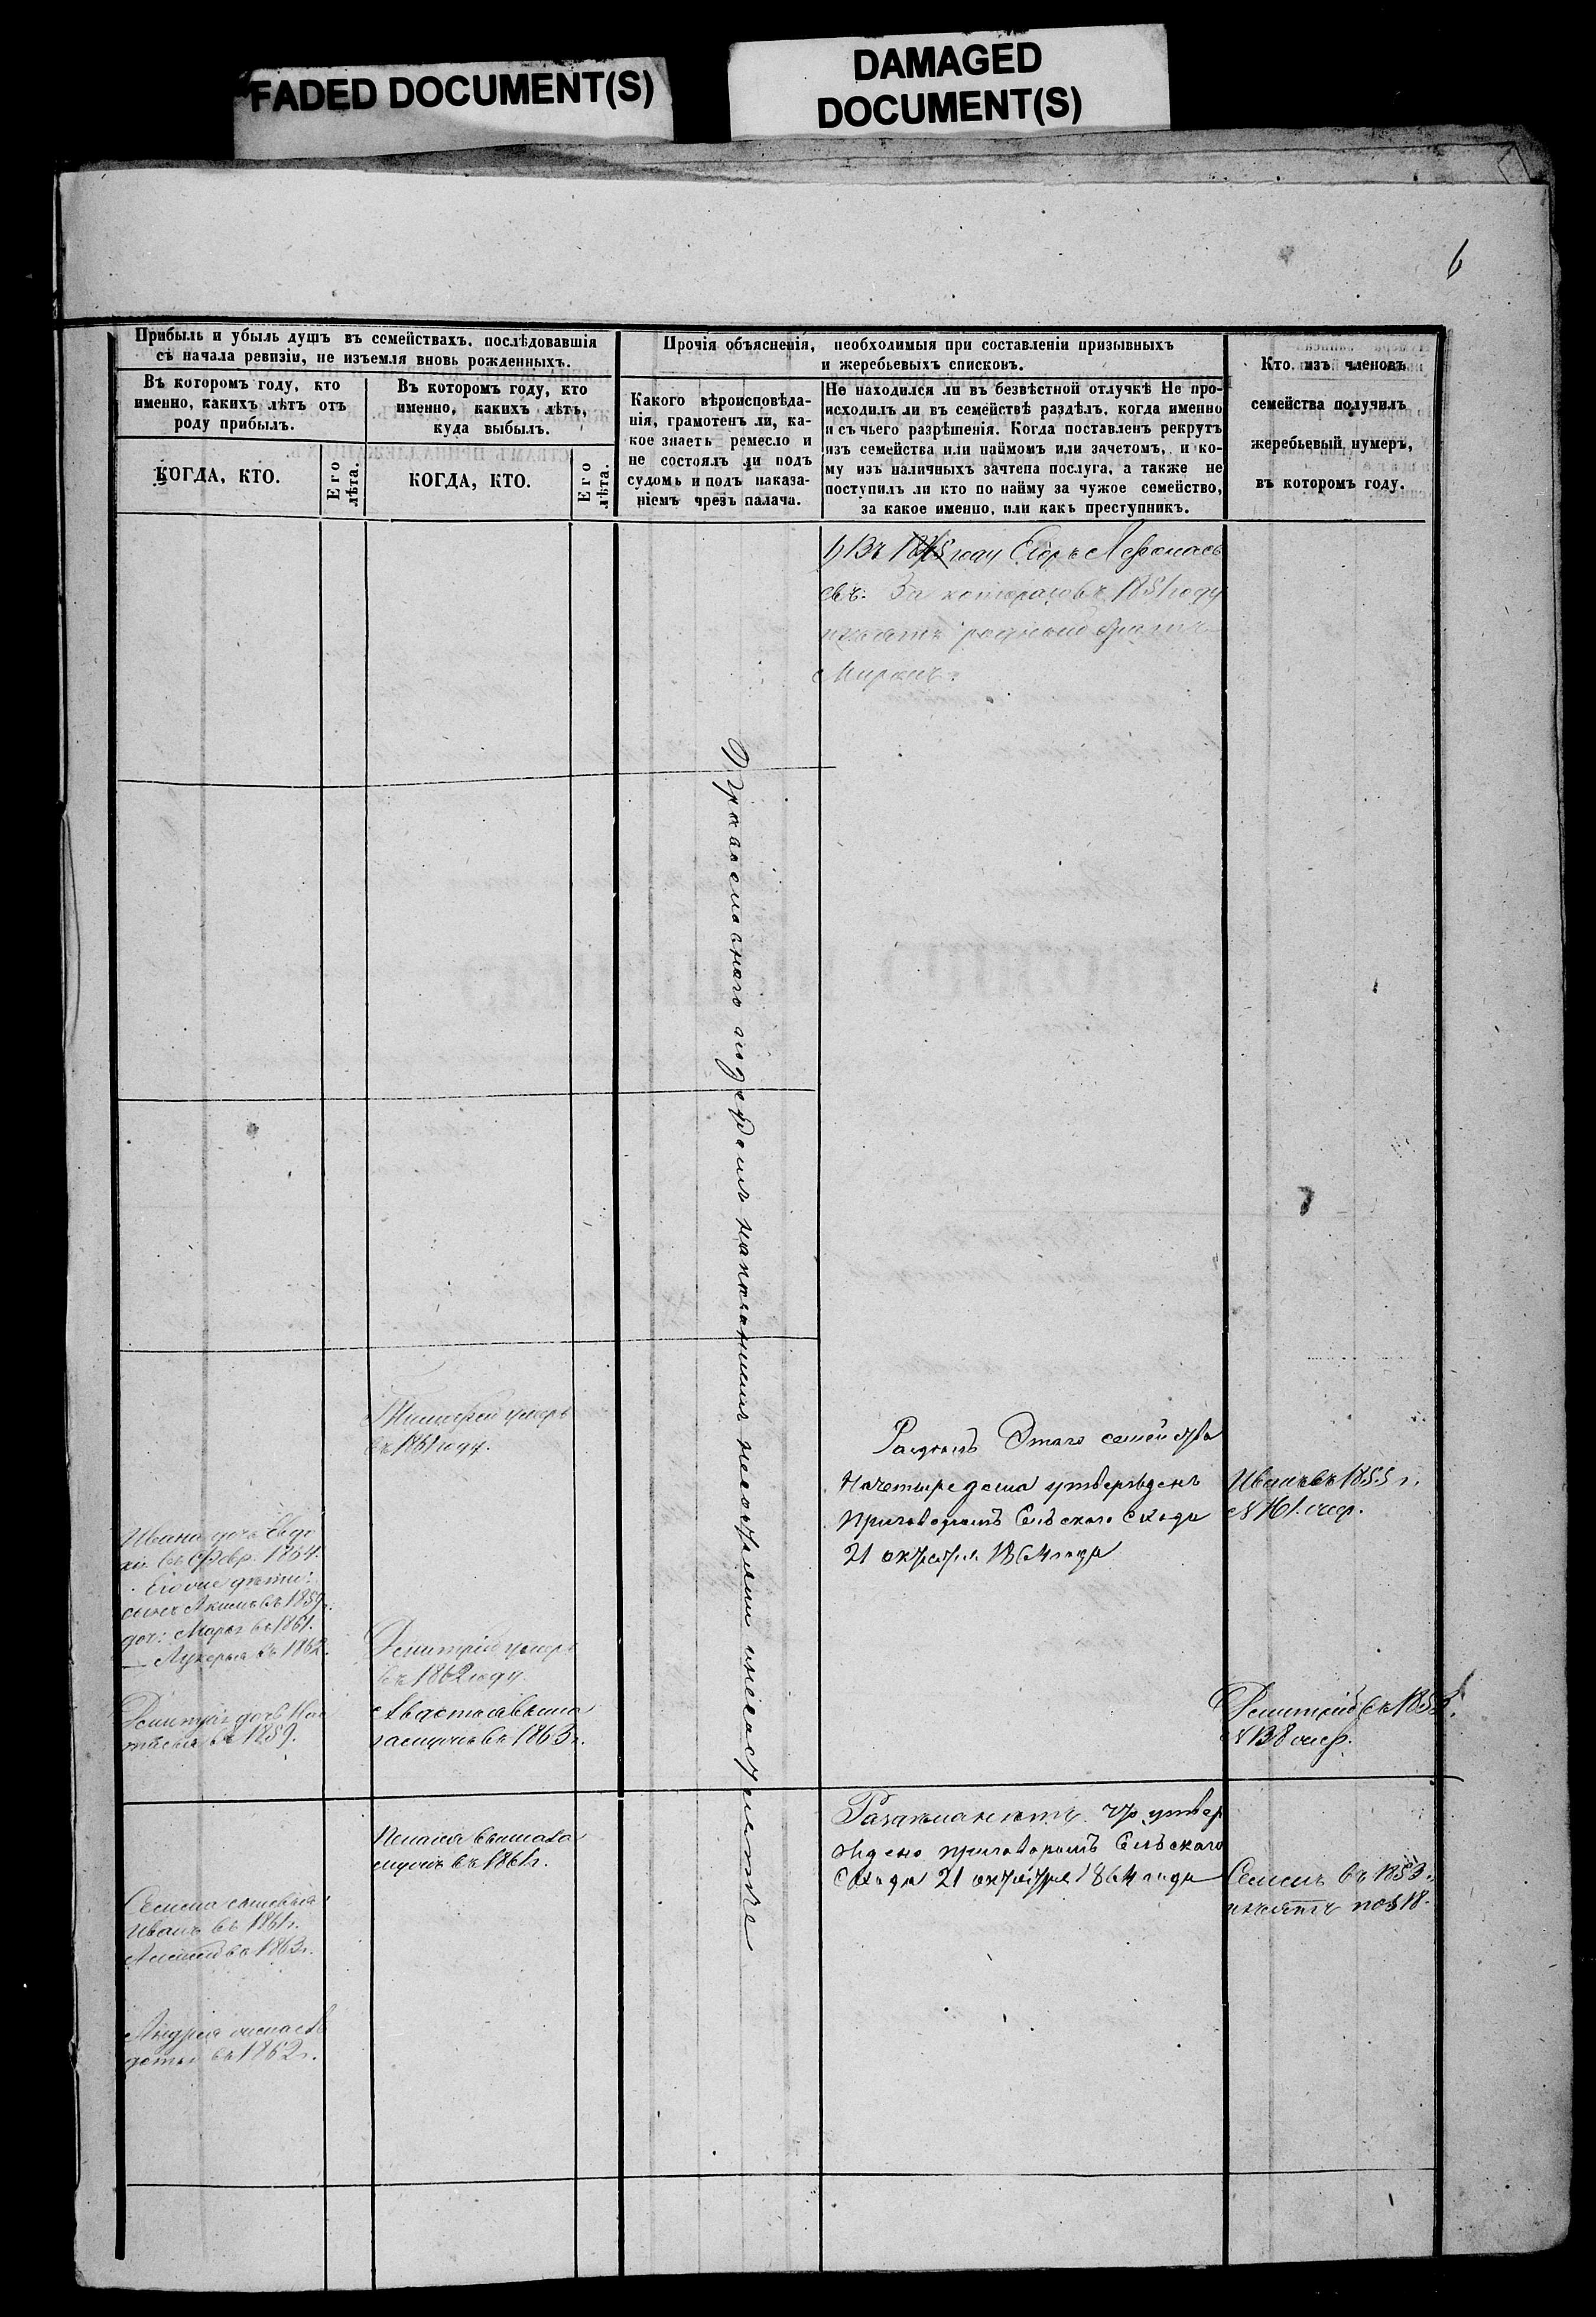 FADED DOCUMENT(S)
DAMAGED
DOCUMENT(S)
6
Прибыль и убыль душъ въ семействахъ, послѣдовавшія
съ начала ревизіи, не изъемля вновь рожденныхъ.
Въ которомъ году, кто
именно, какихъ лѣтъ отъ
роду прибылъ.
КОГДА, КТО.
Его
лѣта.
Въ которомъ году, кто
именно, какихъ лѣтъ,
куда выбылъ.
КОГДА, КТО.
Его
лѣта.
Прочія объясненія, необходимыя при составленіи призывныхъ
и жеребьевыхъ списковъ.
Какого вѣроисповѣда-
нія, грамотенъ ли, ка-
кое знаетъ ремесло и
не состоялъ ли подъ
судомъ и подъ наказа-
ніемъ чрезъ палача.
Не находился ли въ безвѣстной отлучкѣ Не про-
исходилъ ли въ семействѣ раздѣлъ, когда именно
и съ чьего разрѣшенія. Когда поставленъ рекрутъ
изъ семейства или наймомъ или зачетомъ, и ко-
му изъ наличныхъ зачтена послуга, а также не
поступилъ ли кто по найму за чужое семейство,
за какое именно, или какъ преступникъ.
Кто изъ членовъ
семейства получилъ
жеребьевый нумеръ,
въ которомъ году.
Въ году Егоръ Афонась
евъ. За котораго въ 1851 году
родной братъ
Миронъ.
Православнаго подсудомъ
Тимофей умеръ
въ 1861 году.
Раздѣлъ Этаго семейства
Начетыре дома утвержденъ
приговоромъ Сельскаго Схода
21 октября 1864 года
Иванъ въ 1855 г.
№ 161.
Ивана дочь Евдо
кія въ Февр. 1864.
Его же дѣти:
сынъ Акимъ въ 1859 г.
доч: Марѳ въ 1861.
— Лукерья въ 1862.
Дмитрій умеръ
въ 1862 году
Дмитрія дочь Нас
тасья въ 1859.
Авдотья вышла
замужъ въ 1863 г.
Дмитрій въ
№ 138
вышла за
мужъ въ 1861 г.
утвер
ждено приговоромъ Сельскаго
Схода 21 октября 1864 года
Семенъ въ 1853 г.
Семена сыновья
Иванъ въ 1861 г.
въ 1863 г.
Андрея
въ 1862 г.